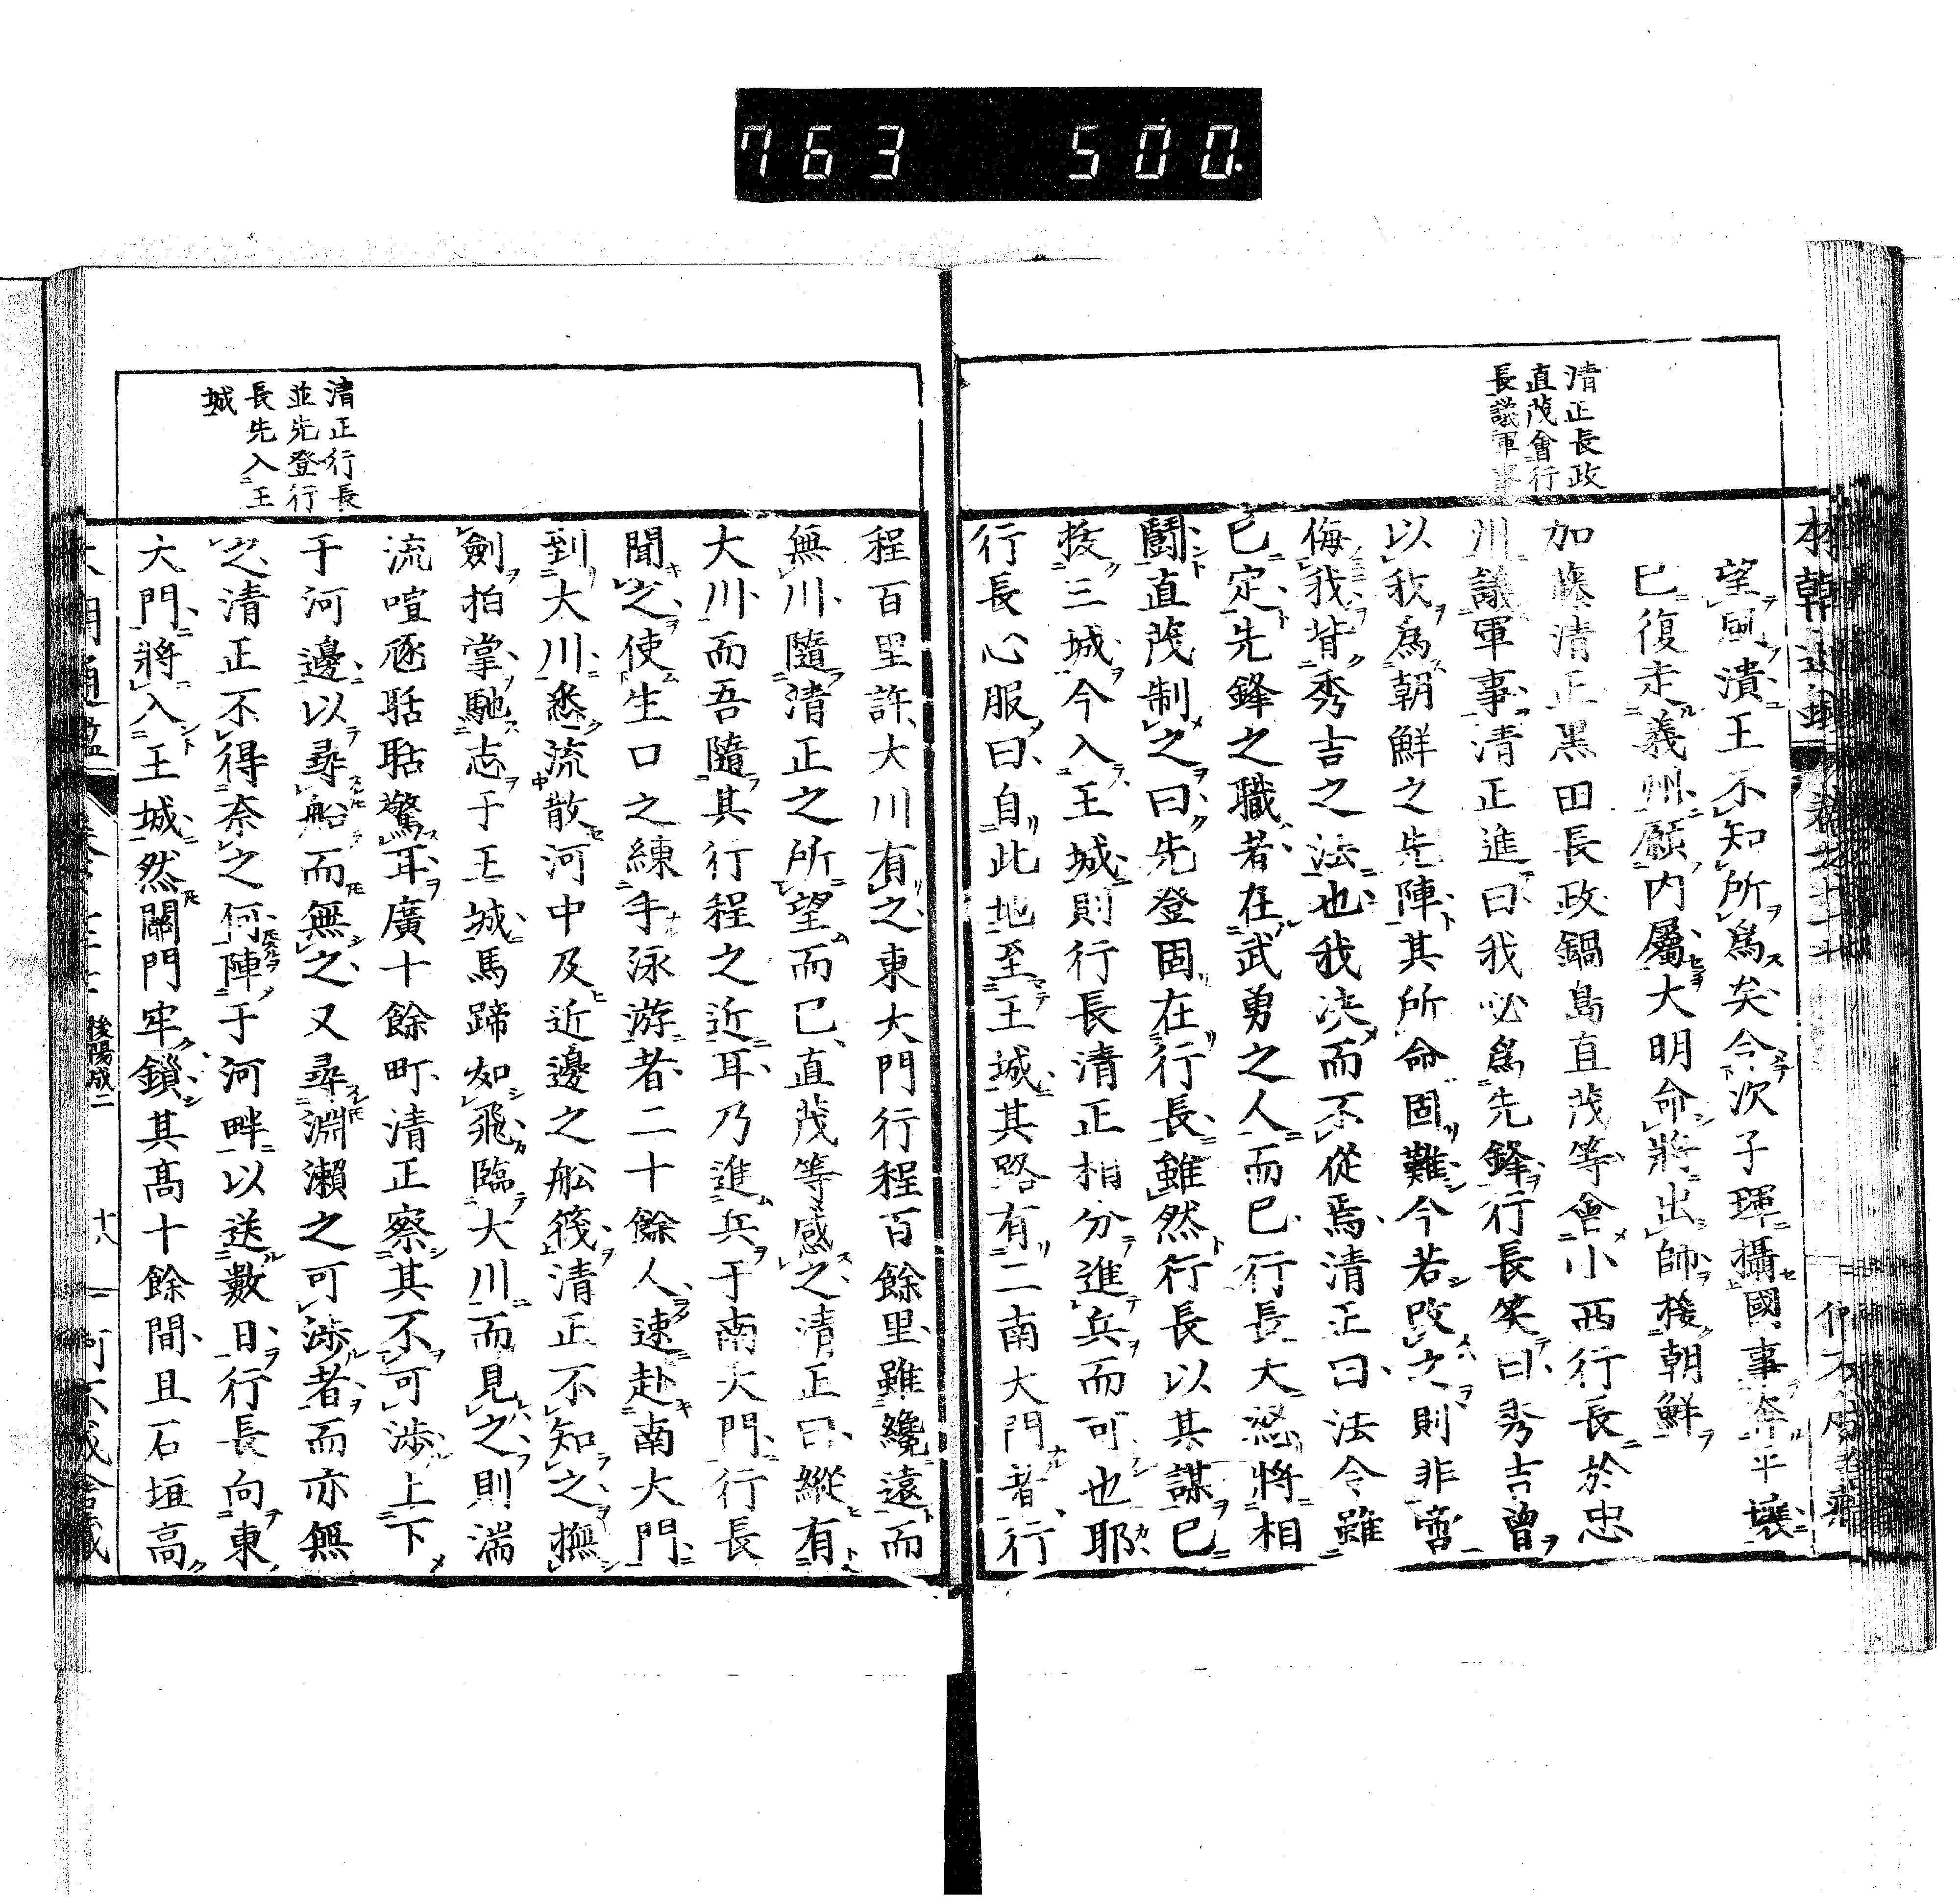 763 500.
清正長政
直茂會行
長議軍事
望風潰王不知所爲矣今次子琿攝國事奔平壤
已復走義州願内屬大明命將出師援朝鮮
加藤清正黒田長政鍋島直茂等會小西行長於忠
川議軍事清正進曰我必爲先鋒行長笑曰秀吉曾
以我爲朝鮮之先陣其所命固難今若改之則非啻
侮我背秀吉之法也我决而不從焉清正曰法令雖
已定先鋒之職者在武勇之人而已行長大怒將相
鬪直茂制之曰先登固在行長雖然行長以其謀已
拔三城今入王城則行長清正相分進兵而可也耶
行長心服曰自此地至王城其路有二南大門者行
清正行長
並先登行
長先入王
城
程百里許大川有之東大門行程百餘里雖纔遠而
無川隨清正之所望而已直茂等感之清正曰縱有
大川而吾隨其行程之近耳乃進兵于南大門行長
聞之使生口之練手泳游者二十餘人速赴南大門
到大川悉流散河中及近邊之舩筏清正不知之撫
劍拍掌馳志于王城馬蹄如飛臨大川而見之則湍
流喧豗聒聒驚耳廣十餘町清正察其不可渉上下
于河邊以尋船而無之又尋淵瀨之可渉者而亦無
之清正不得奈之何陣于河畔以送數日行長向東
大門將入王城然關門牢鎖其高十餘間且石垣高
後陽成二
十八